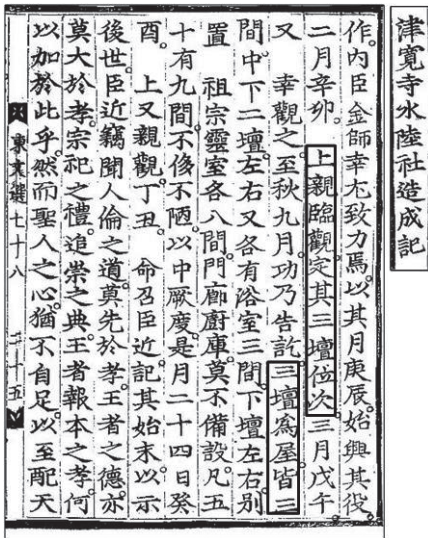 津寬寺水陸社造成記
作。內臣金師幸尤致力焉。以其月庚辰。始興其役。
二月辛卯。上親臨觀。定其三壇位次。三月戊午。
又 幸觀之。至秋九月。功乃告訖。三壇爲屋皆三
間。中下二壇。左右又各有浴室三間。下壇左右別
置 祖宗靈室各八間。門廊廚庫。莫不備設。凡五
十有九間。不侈不陋。以中厥度。是月二十四日癸
酉。 上又親觀。丁丑。 命召臣近。記其始末。以示
後世。臣近竊聞人倫之道。莫先於孝。王者之德。亦
莫大於孝。宗祀之禮。追崇之典。王者報本之孝。何
以加於此乎。然而聖人之心。猶不自足。以至配天
東文選七十八 二十五